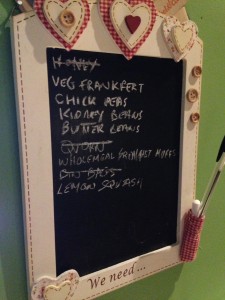 HONEY
VEG FRANKFERT
CHICK PEAS
KIDNEY BEANS
BUTTER BEANS
QUORN
WHOLEMEAL BREAKFAST MUFFS
BIN BAGS
LEMON SQUASH
We need...